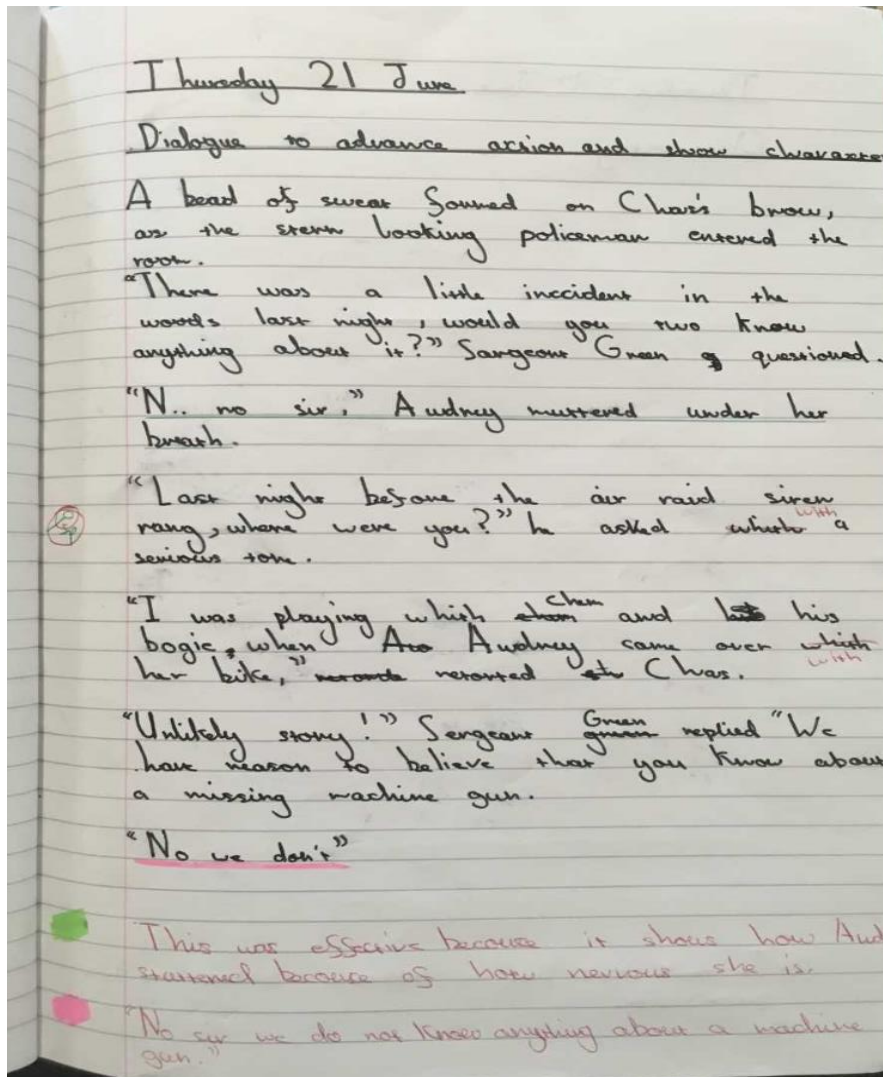 Thursday 21 June
Dialogue to advance action and show character
A bead of sweat formed on Chas's brow,
as the stern looking policeman entered the
room.
"There was a little inccident in the
woods last night, would you two know
anything about it?" Sargeant Green questioned.
"N.. no sir," Audrey muttered under her
breath.
"Last night before the air raid siren
with
rang, where were you?" he asked a
serious tone.
Chem
"I was playing which and his
bogie, when Audrey came over which
with
her bike," retorted Chas.
Green
"Unlikely story!" Sergeant replied "We
have reason to believe that you know about
a missing machine gun.
"No we don't"
This was effective because it shows how Aud
stattered because of how nervous she is.
"No sir we do not know anything about a machine
gun."